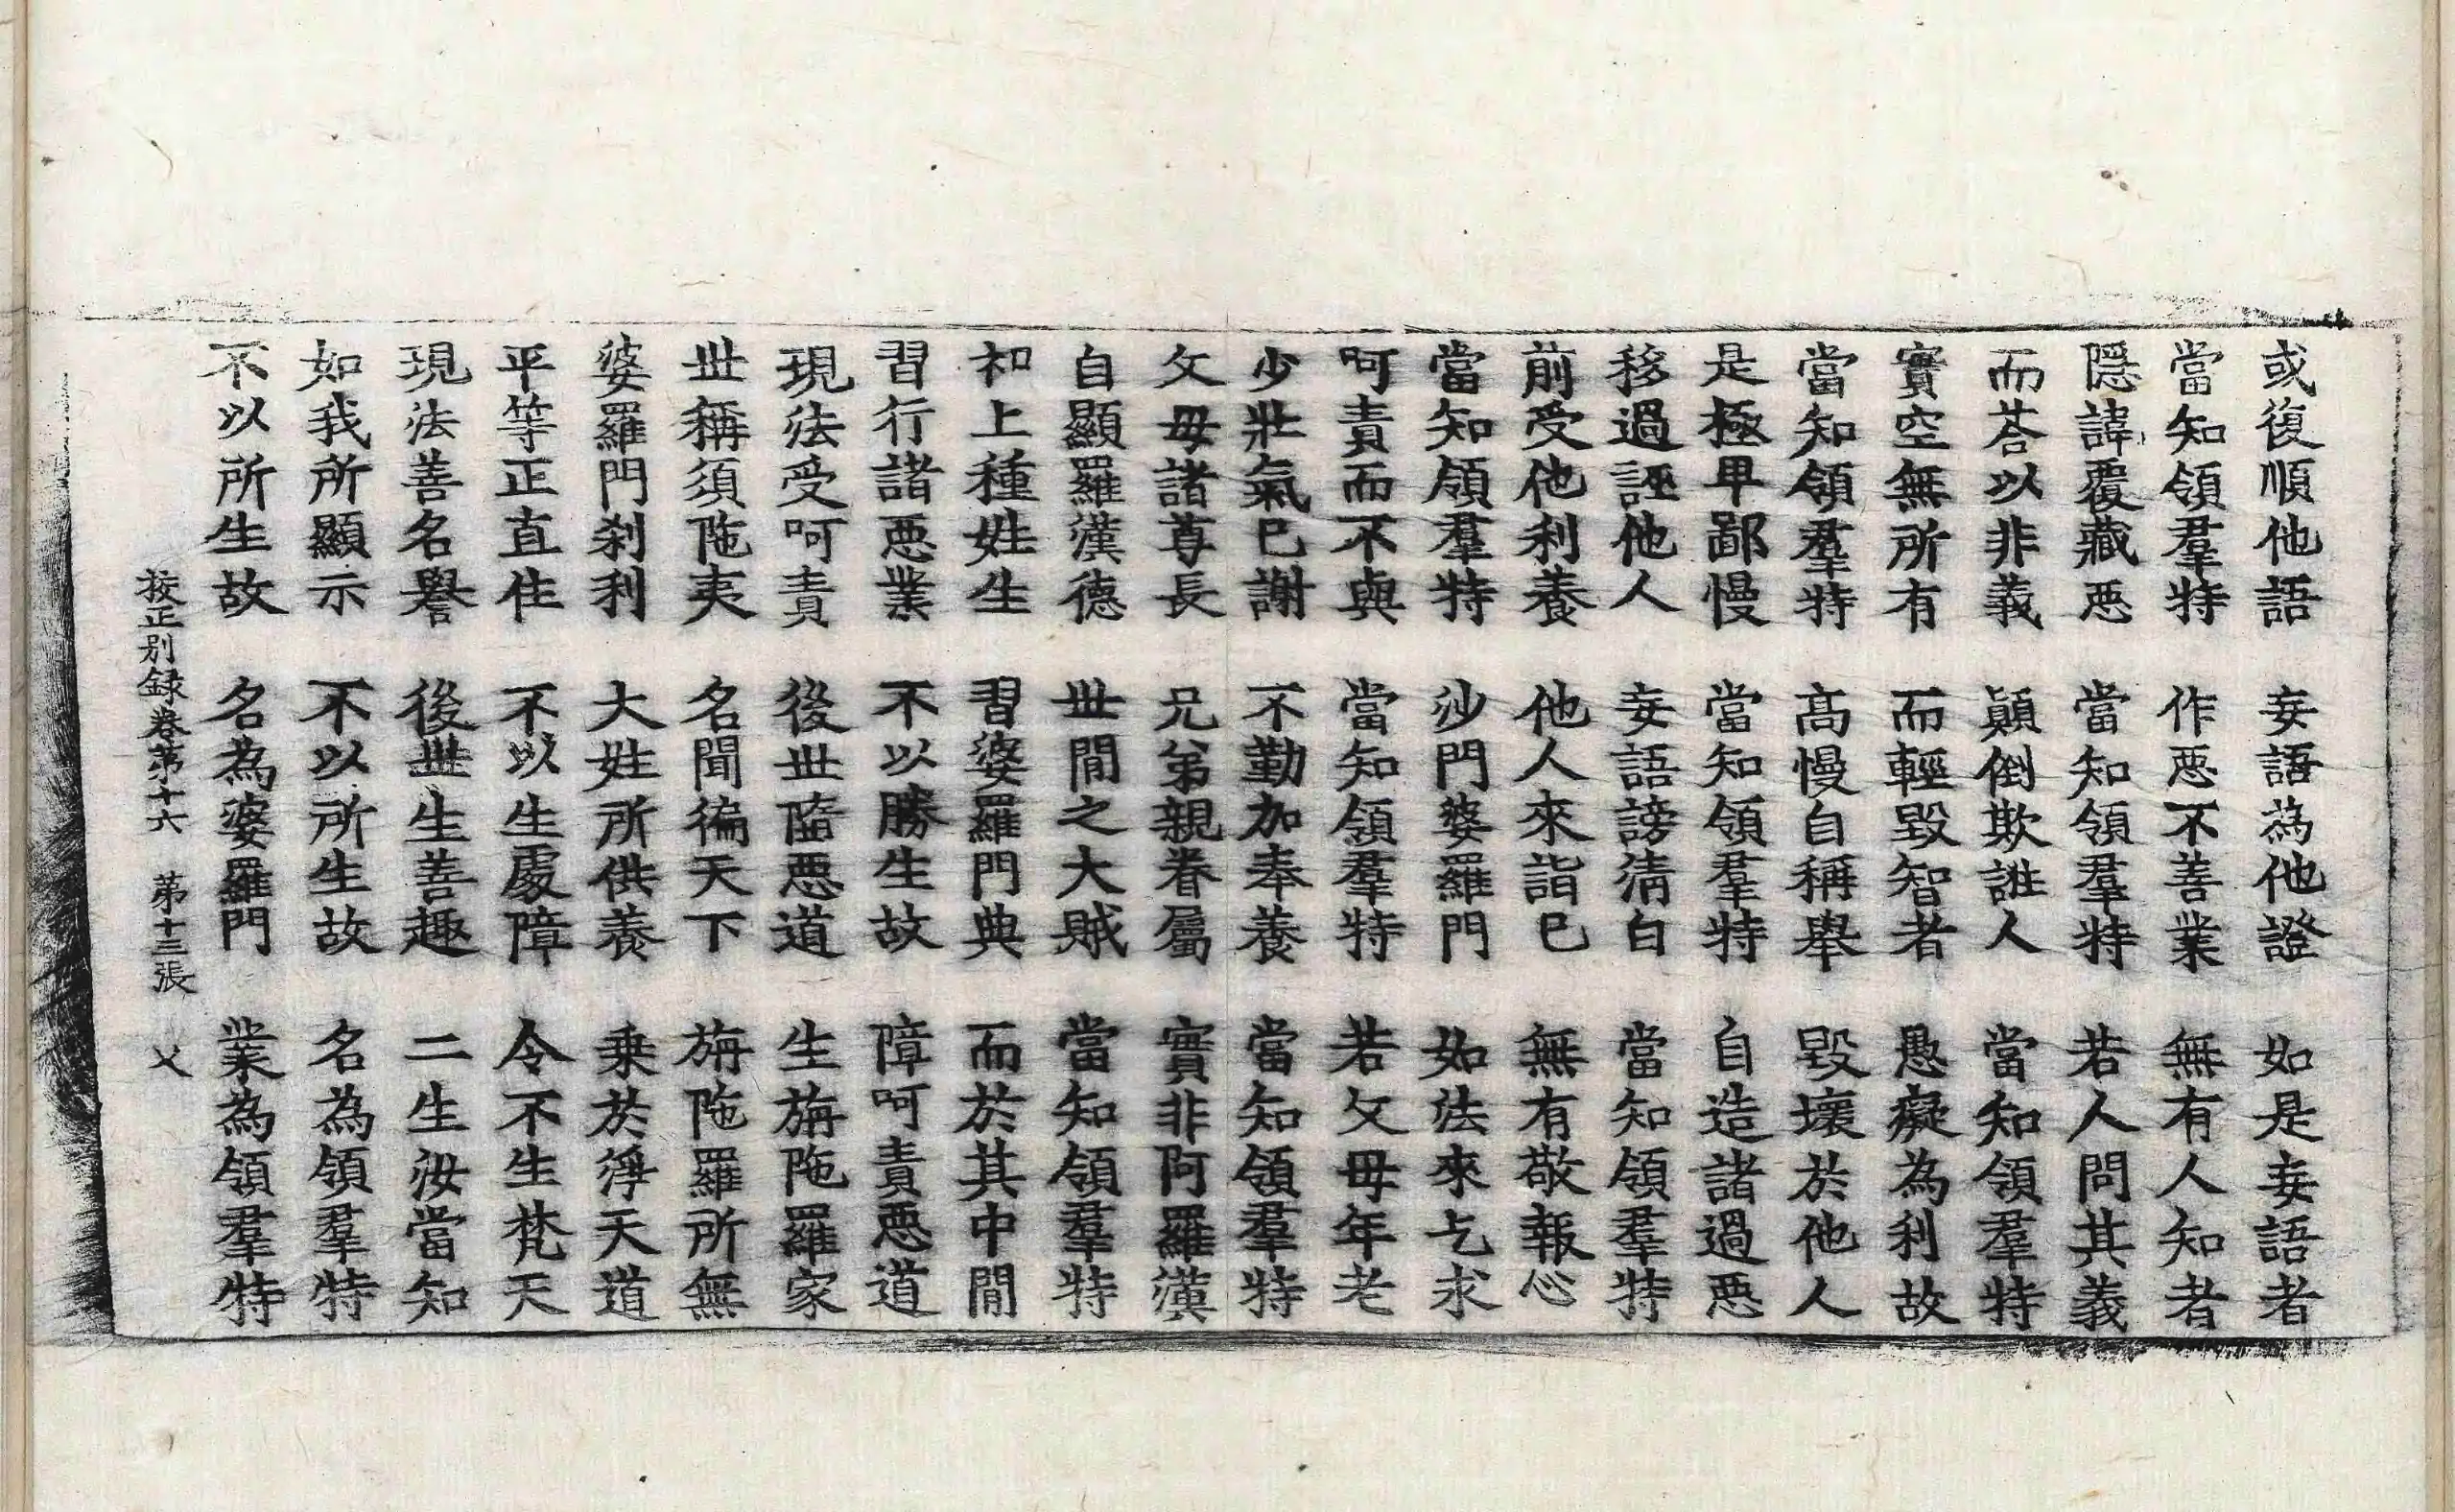 或復順他語　妄語為他證　如是妄語者
當知領羣特　作惡不善業　無有人知者
隱諱覆藏惡　當知領羣特　若人問其義
而荅以非義　顛倒欺誑人　當知領羣特
實空無所有　而輕毀智者　愚癡為利故
當知領羣特　高慢自稱舉　毀壞於他人
是極卑鄙慢　當知領羣特　自造諸過惡
移過誣他人　妄語謗清白　當知領羣特
前受他利養　他人來詣已　無有敬報心
當知領羣特　沙門婆羅門　如法來乞求
呵責而不與　當知領羣特　若父母年老
少壯氣已謝　不勤加奉養　當知領羣特
父母諸尊長　兄弟親眷屬　實非阿羅漢
自顯羅漢德　世間之大賊　當知領羣特
初上種姓生　習婆羅門典　而於其中間
習行諸惡業　不以勝生故　障呵責惡道
現法受呵責　後世墮惡道　生旃陁羅家
世稱須陁夷　名聞徧天下　旃陁羅所無
婆羅門剎利　大姓所供養　乗於淨天道
平等正直住　不以生處障　令不生梵天
現法善名譽　後世生善趣　二生汝當知
如我所顯示　不以所生故　名為領羣特
不以所生故　名為婆羅門　業為領羣特
挍正別録卷第十六　第十三張　乂